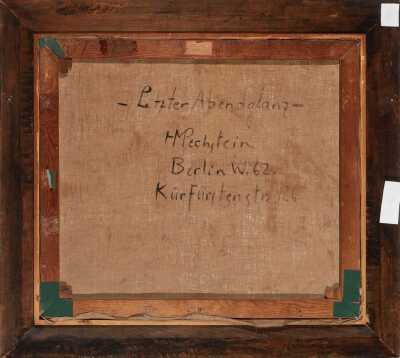 - Letzter Abendglanz -
HMPechstein
Berlin W. 62.
Kurfürstenstr. 126